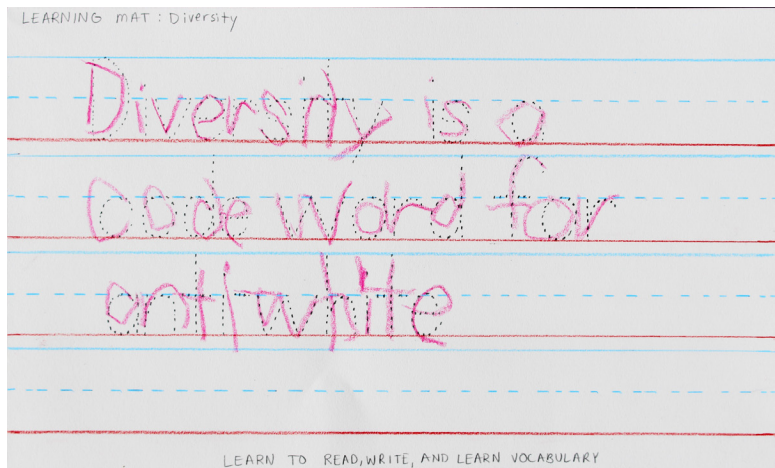 LEARNING MAT: Diversity
Diversity is a
code word for
anti-white
LEARN TO READ, WRITE, AND LEARN VOCABULARY